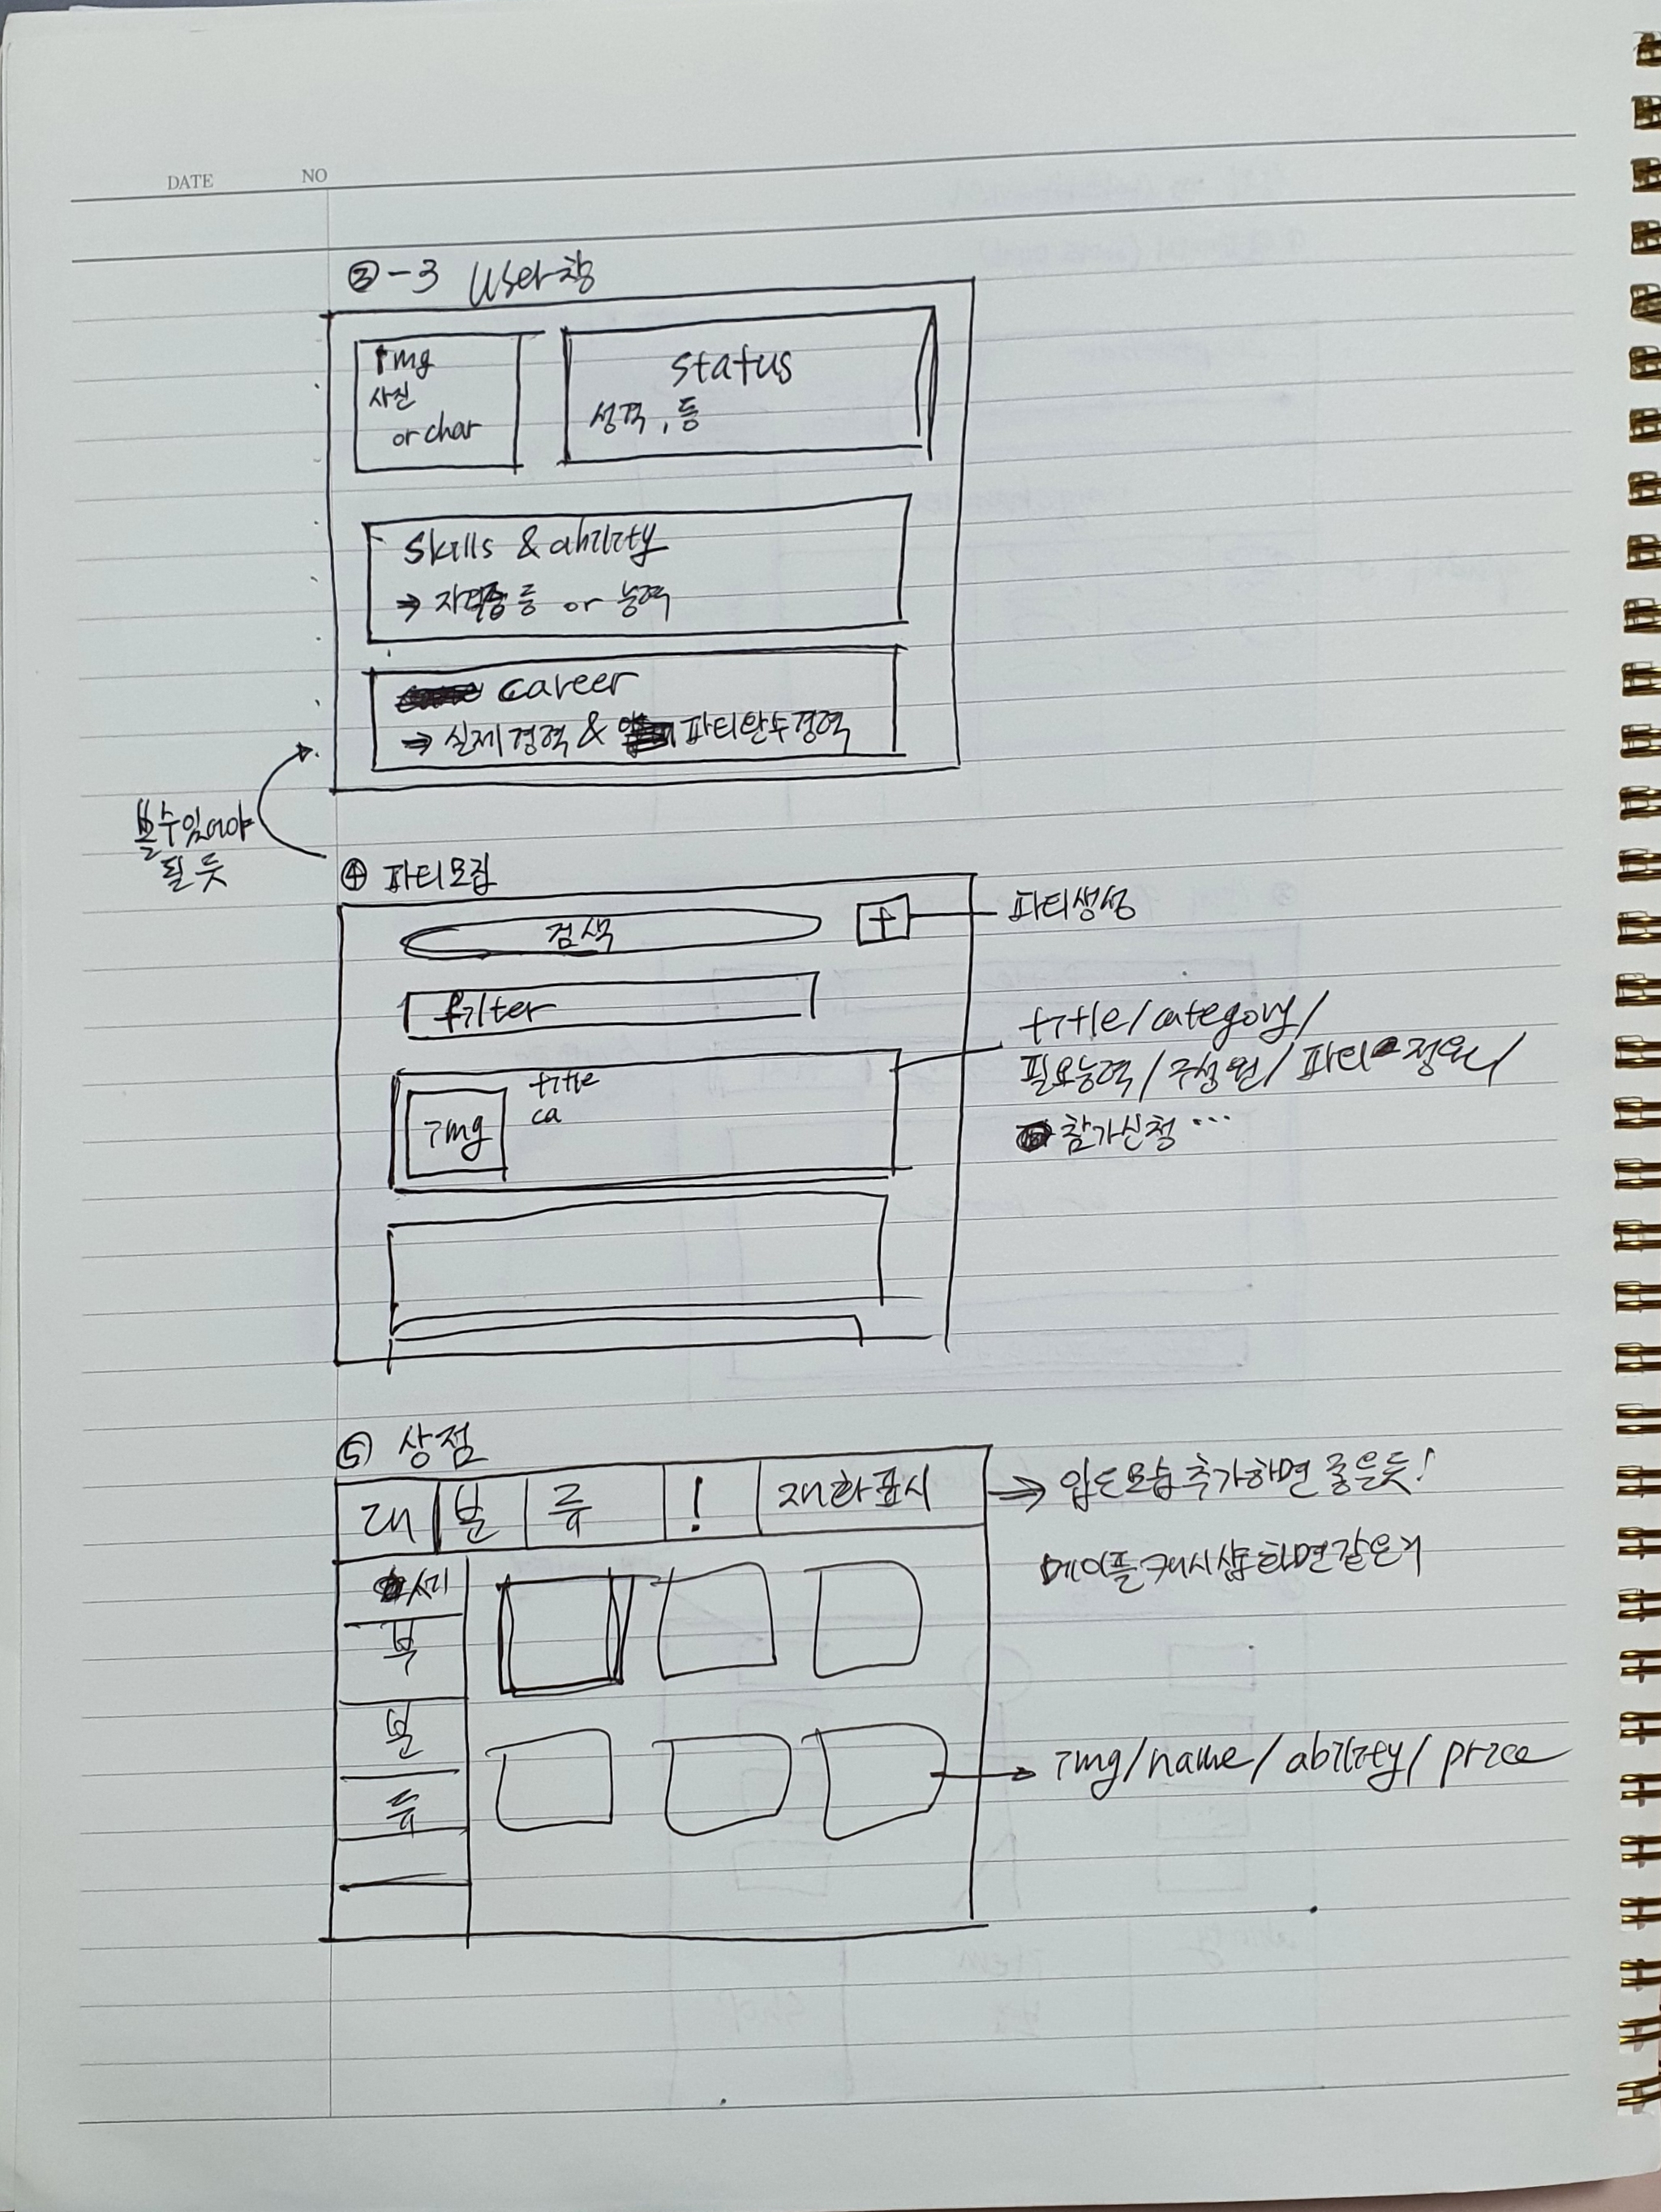 DATE NO
②-3 User창
img
사진
or char
status
성격, 등
skills & ability
→ 자격증 등 or 능력
career
→ 실제경력 & 파티완수경력
볼수있어야
될 듯
④ 파티모집
검색
+
파티생성
filter
title
ca
img
title/category/
필요능력/구성원/파티 정원/
참가신청 ...
⑤ 상점
대 분 류 ! 재화표시
→ 입은모습추가하면 좋은듯!
메이플캐시샵화면같은거
세
부
분
류
→ img/name/ability/price